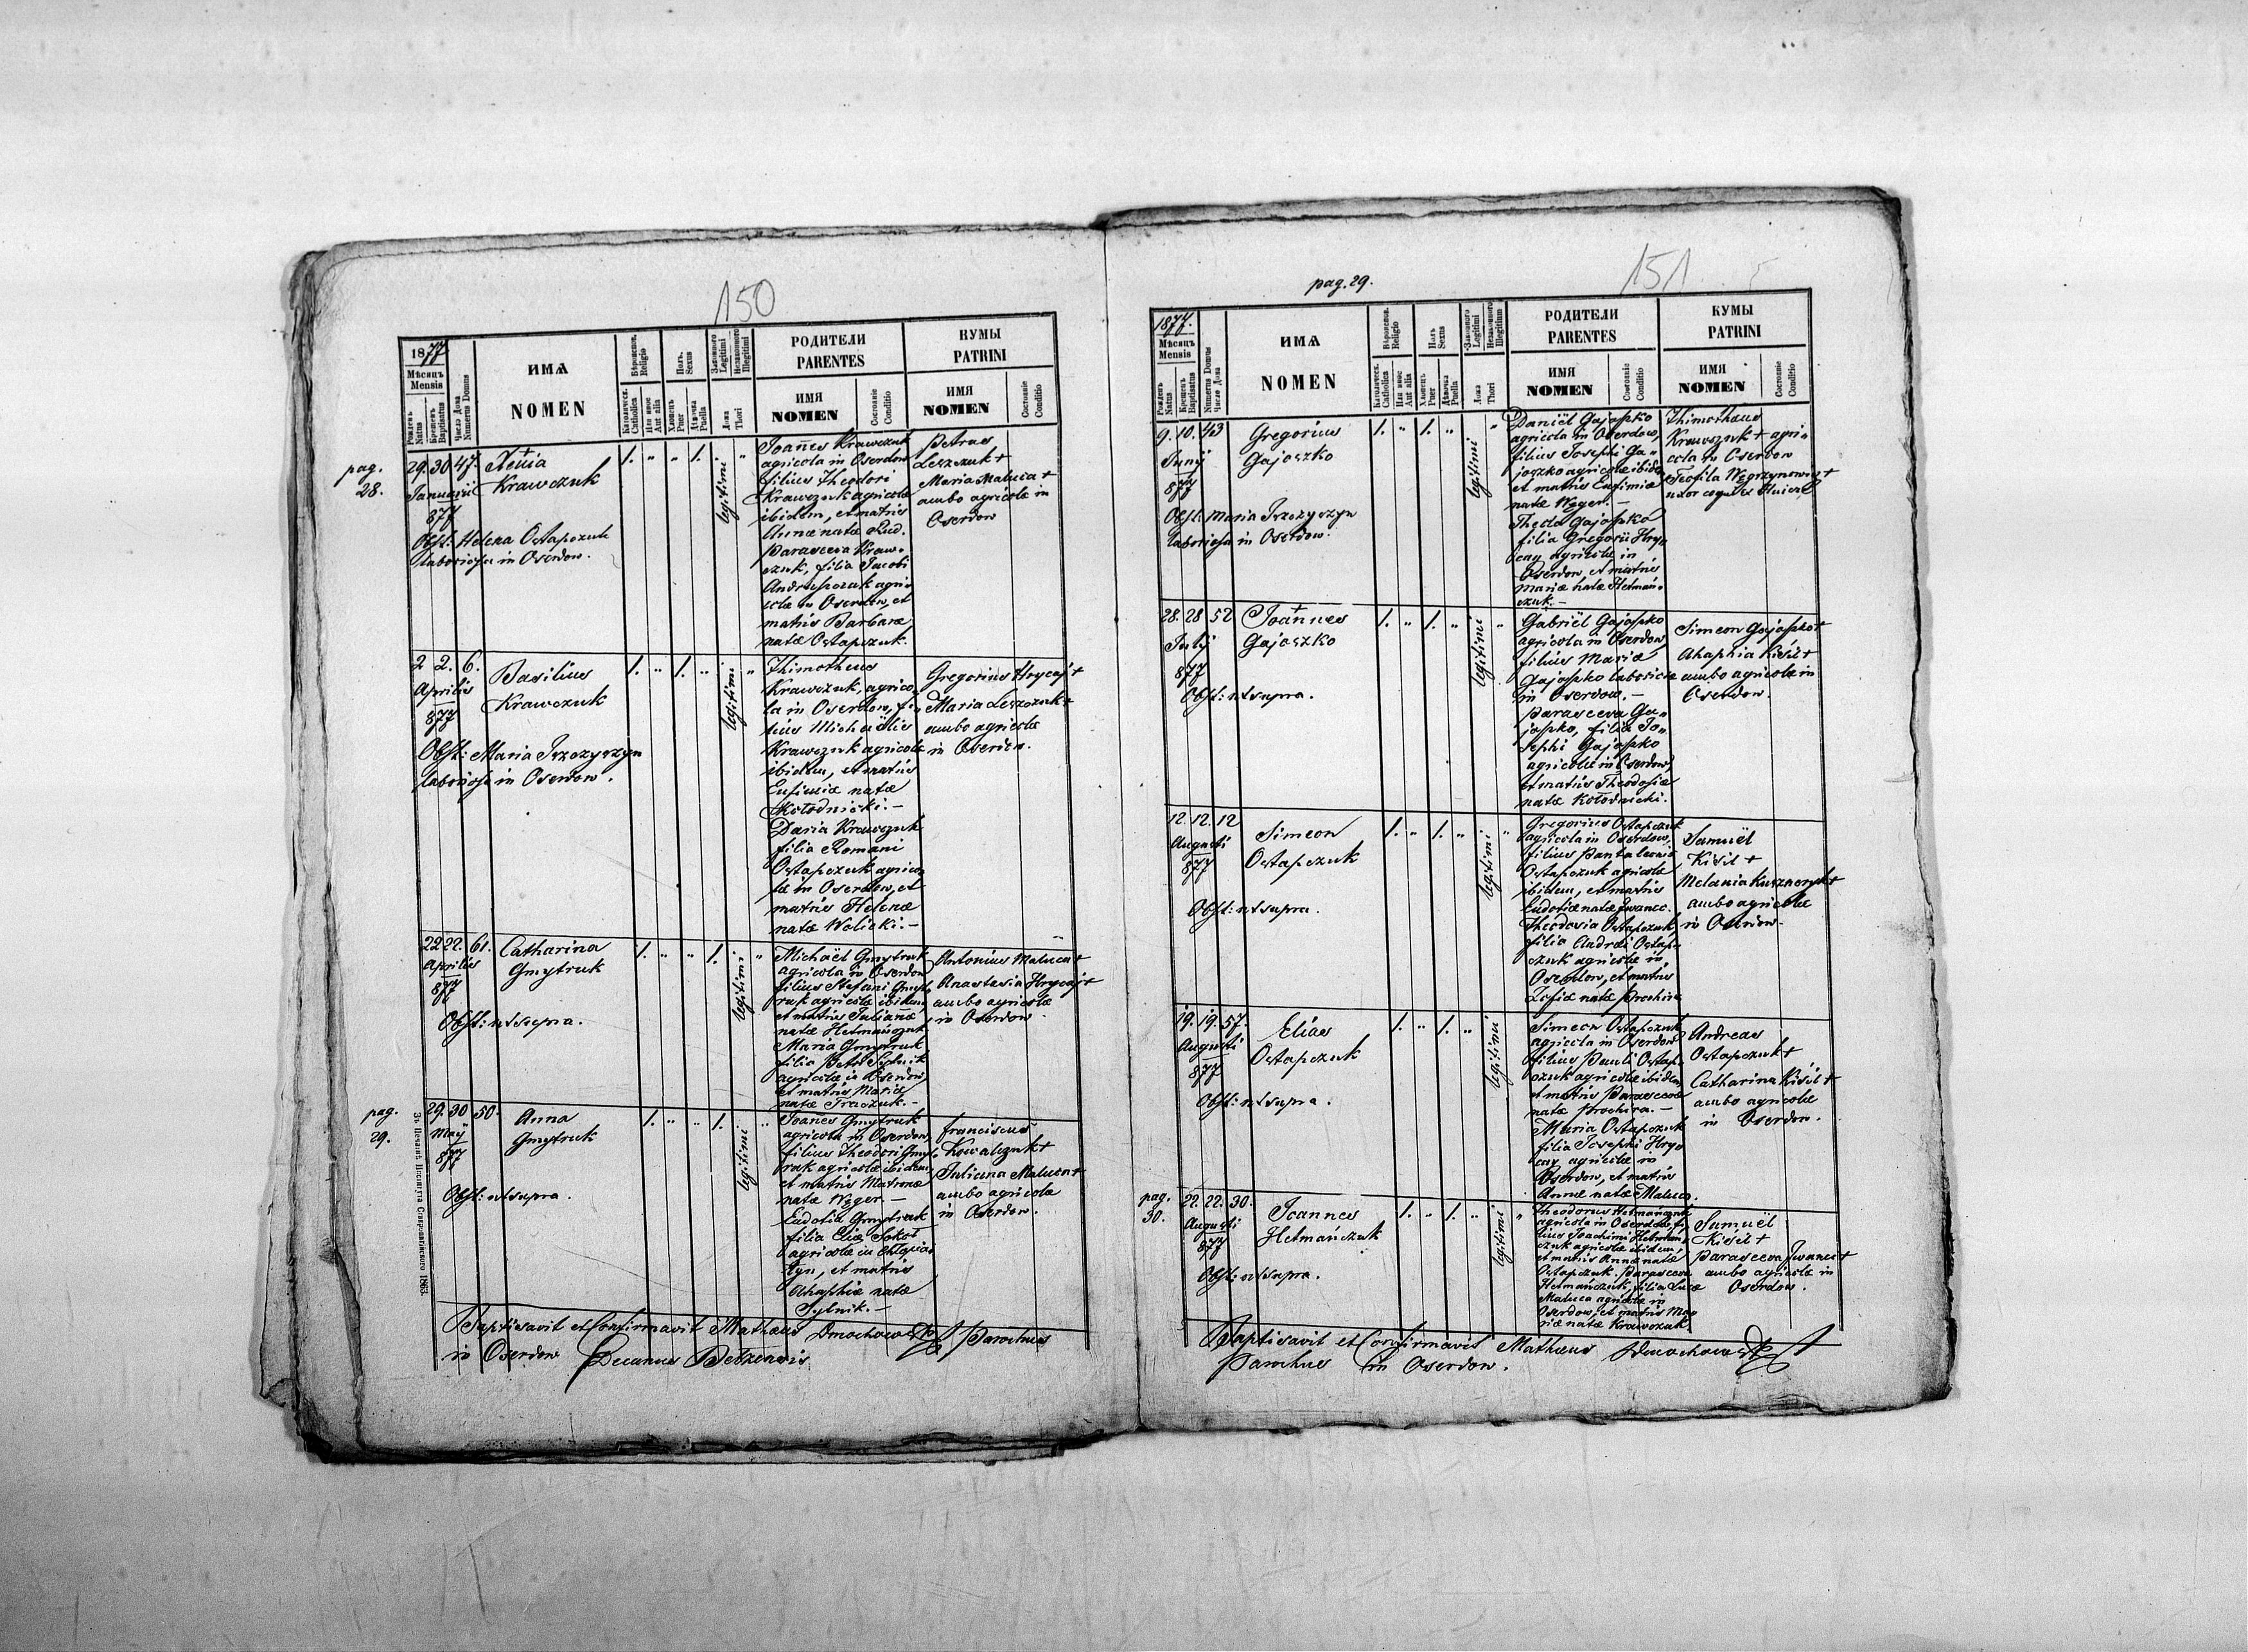 150
1877.
Мѣсяцъ
Mensis
Рожденъ
Natus
Крещенъ
Baptisatus
Число Дома
Numerus Domus
ИМѦ
NOMEN
Вѣроиспов.
Religio
Католическ.
Catholica
Или иное
Aut alia
Полъ.
Sexus
Хлопецъ
Puer
Дѣвочка
Puella
Законного
Legitimi
Незаконного
Illegitimi
Ложа
Thori
РОДИТЕЛИ
PARENTES
ИМЯ
NOMEN
Состояніе
Conditio
КУМЫ
PATRINI
ИМЯ
NOMEN
Состояніе
Conditio
pag.
28.
29. 30 47.
Januarii
877
Xenia
Krawczuk
1. " " 1. legitimi "
Obst: Helena Ostapczuk
laboriosa in Oserdow.
Joannes Krawczuk
agricola in Oserdow
filius Theodori
Krawczuk agricolæ
ibidem, et matris
Annæ natæ Rud.
Parasceva Kraw-
czuk, filia Jacobi
Andrujszczak agri-
colæ in Oserdow, et
matris Barbaræ
natæ Ostapczuk.
Petrus
Leszczuk +
Maria Maluca +
ambo agricolæ in
Oserdow
2 2. 6.
Aprilis
877
Basilius
Krawczuk
1. " 1. " legitimi "
Obst: Maria Trzczyszyn
laboriosa in Oserdow.
Thimotheus
Krawczuk, agrico-
la in Oserdow, fi-
lius Michaëlis
Krawczuk agricolæ
ibidem, et matris
Eufimiæ natæ
Kołodnicki.—
Daria Krawczuk
filia Romani
Ostapczuk agrico-
læ in Oserdow, et
matris Helenæ
natæ Wolicki.—
Gregorius Hrycaj +
Maria Leszczuk +
ambo agricolæ
in Oserdow.
22 22. 61.
Aprilis
877
Catharina
Gmytruk
1. " " 1. legitimi "
Obst: ut supra.
Michaël Gmytruk
agricola in Oserdow
filius Stefani Gmyt-
ruk agricolæ ibidem
et matris Julianæ
natæ Hetmańczuk
Maria Gmytruk
filia Petri Sylnik
agricolæ in Oserdow,
et matris Mariæ
natæ Traczuk.—
Antonius Maluca +
Anastasia Hrycaj +
ambo agricolæ
in Oserdow.
pag.
29.
29. 30 50.
Maij
877
Anna
Gmytruk
1. " " 1. legitimi "
Obst: ut supra.
Joannes Gmytruk
agricola in Oserdow,
filius Theodori Gmyt-
ruk agricolæ ibidem,
et matris Matronæ
natæ Węger.—
Eudotia Gmytruk
filia Eliæ Sokoł
agricolæ in Chłopia-
tyn, et matris
Ahaphiæ natæ
Sylnik.—
Franciscus
Kowalczuk +
Juliana Maluca +
ambo agricolæ
in Oserdow.
Baptisavit et Confirmavit Matheus Dmochowski Parochus
in Oserdow Decanus Belzensis
Зъ Печатнѣ Института Ставропигійского 1863.
pag. 29.
151
1877.
Мѣсяцъ
Mensis
Рожденъ
Natus
Крещенъ
Baptisatus
Число Дома
Numerus Domus
ИМѦ
NOMEN
Вѣроиспов.
Religio
Католическ.
Catholica
Или иное
Aut alia
Полъ
Sexus
Хлопецъ
Puer
Дѣвочка
Puella
Законного
Legitimi
Незаконного
Illegitimi
Ложа
Thori
РОДИТЕЛИ
PARENTES
ИМЯ
NOMEN
Состояніе
Conditio
КУМЫ
PATRINI
ИМЯ
NOMEN
Состояніе
Conditio
9. 10. 43
Junij
877
Gregorius
Gajoszko
1. " 1. " legitimi "
Obst: Maria Trzczyszyn
laboriosa in Oserdow.
Daniël Gajoszko
agricola in Oserdow,
filius Josephi Ga-
joszko agricolæ ibidem
et matris Eufimiæ
natæ Węger.—
Thecla Gajoszko
filia Gregorii Hry-
cay agricolæ in
Oserdow, et matris
Mariæ natæ Hetmań-
czuk.—
Thimotheus
Krawczuk + agri-
cola in Oserdow
Teofila Węgrzynowicz +
28. 28 52
Julij
877
Joannes
Gajoszko
1. " 1. " legitimi "
Obst: ut supra.
Gabriël Gajoszko
agricola in Oserdow,
filius Mariæ
Gajoszko laboriosæ
in Oserdow.—
Parasceva Ga-
joszko, filia Jo-
sephi Gajoszko
agricolæ in Oserdow,
et matris Theodosiæ
natæ Kołodnicki.
Simeon Gajoszko +
Ahaphia Kisil +
ambo agricolæ in
Oserdow.
12. 12. 12
Augusti
877
Simeon
Ostapczuk
1. " 1. " legitimi "
Obst: ut supra.
Gregorius Ostapczuk
agricola in Oserdow,
filius Pantaleonis
Ostapczuk agricolæ
ibidem, et matris
Eudotiæ natæ Iwanec.
Theodosia Ostapczuk,
filia Andreæ Ostap-
czuk agricolæ in
Oserdow, et matris
Zofiæ natæ Prochira
Samuël
Kisil +
Melania
ambo agricolæ
in Oserdow.
19. 19. 57.
Augusti
877
Elias
Ostapczuk
1. " 1. " legitimi
Obst: ut supra.
Simeon Ostapczuk
agricola in Oserdow
filius Pauli Ostap-
czuk agricolæ ibidem,
et matris Parascevæ
natæ Prochira.—
Maria Ostapczuk
filia Josephi Hry-
cay agricolæ in
Oserdow, et matris
Annæ natæ Maluca.
Andreas
Ostapczuk +
Catharina Kisil +
ambo agricolæ
in Oserdow.
pag.
30.
22. 22. 30.
Augusti
877
Joannes
Hetmańczuk
1. " 1. " legitimi "
Obst: ut supra.
Theodorus Hetmańczuk
agricola in Oserdow, fi-
lius Joachimi Hetmań-
czuk agricolæ ibidem,
et matris Annæ natæ
Ostapczuk. Parasceva
Hetmańczuk, filia Lucæ
Maluca agricolæ in
Oserdow, et matris Ma-
riæ natæ Krawczuk
Samuël
Kisil +
Parasceva Iwanec +
ambo agricolæ in
Oserdow.
Baptisavit et Confirmavit Matheus Dmochowski
Parochus in Oserdow.